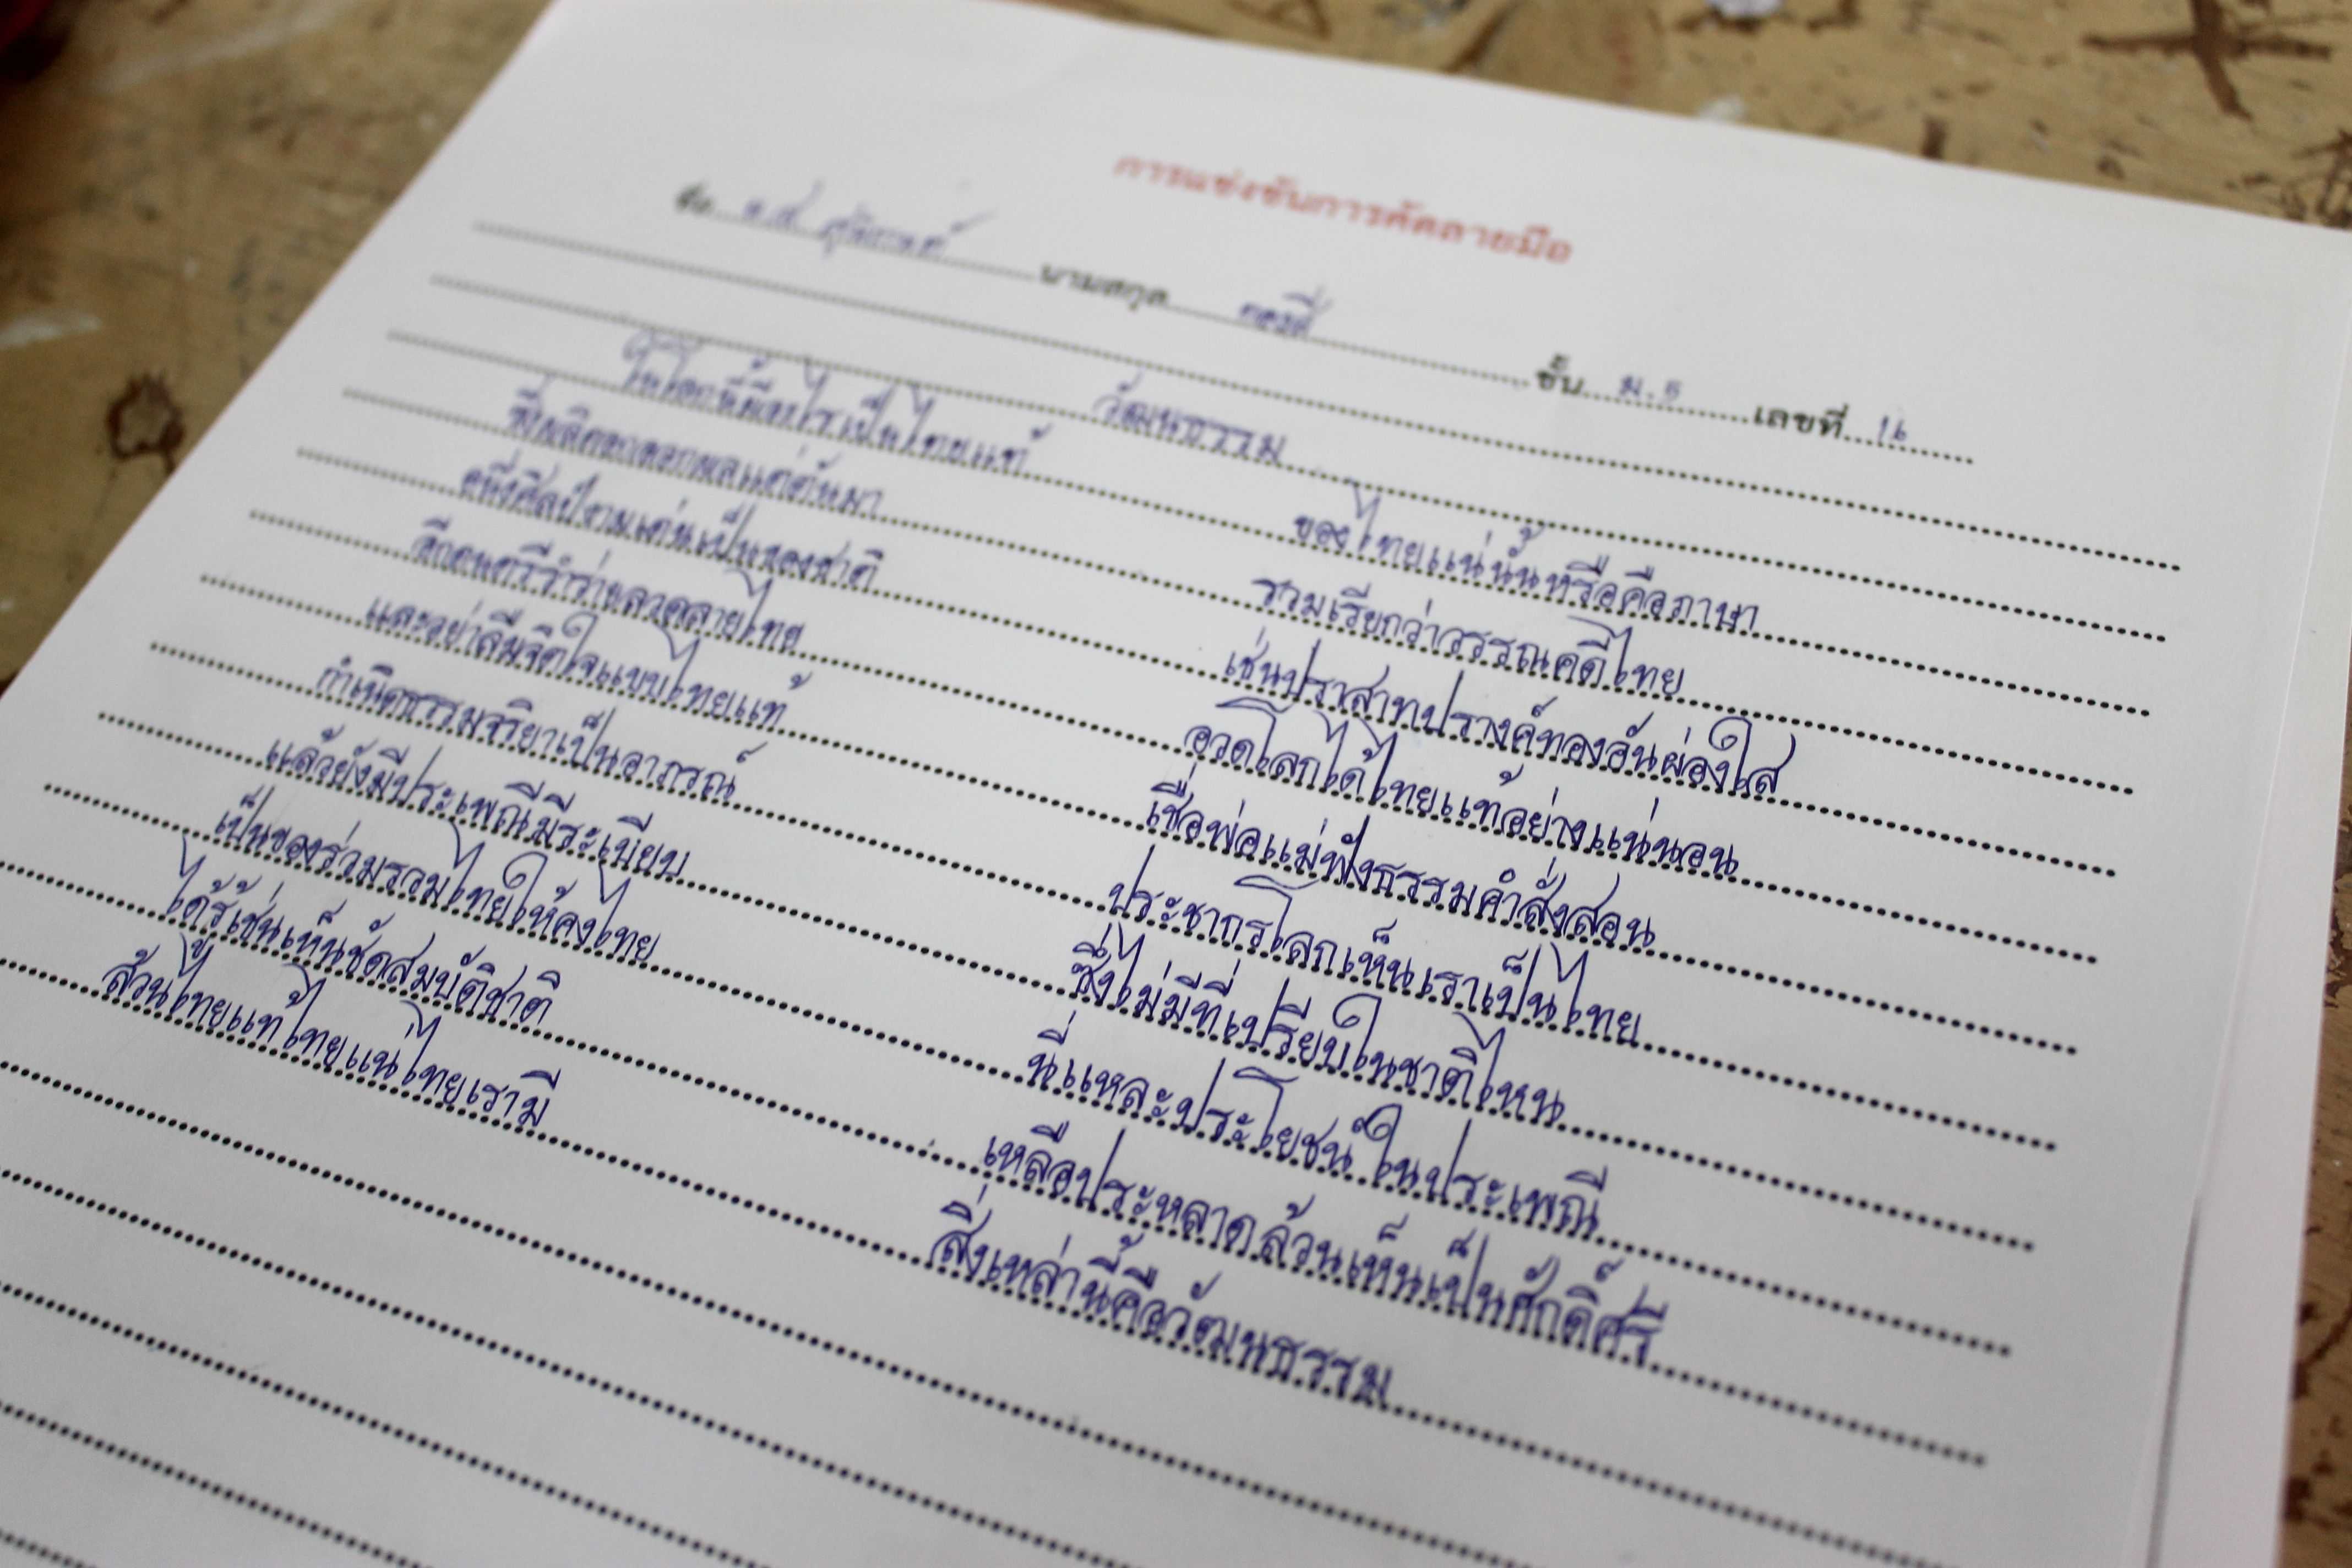 การแข่งขันการคัดลายมือ
ชื่อ นามสกุล ชั้น ม.5 เลขที่ 16
วัฒนธรรม
ในโลกนี้มีอะไรเป็นไทยแท้ ของไทยแน่นั้นหรือคือภาษา
ซึ่งผลิดอกออกผลแต่ต้นมา รวมเรียกว่าวรรณคดีไทย
อนึ่งศิลป์งามเด่นเป็นของชาติ เช่นปราสาทปรางค์ทองอันผ่องใส
อีกดนตรีรำร่ายลวดลายไทย อวดโลกได้ไทยแท้อย่างแน่นอน
และอย่าลืมจิตใจแบบไทยแท้ เชื่อพ่อแม่ฟังธรรมคำสั่งสอน
กำเนิดธรรมจริยาเป็นอาภรณ์ ประชากรโลกเห็นเราเป็นไทย
แล้วยังมีประเพณีมีระเบียบ ซึ่งไม่มีที่เปรียบในชาติไหน
เป็นของร่วมรวมไทยให้คงไทย นี่แหละประโยชน์ในประเพณี
ได้รู้เช่นเห็นชัดสมบัติชาติ เหลือประหลาดล้วนเห็นเป็นศักดิ์ศรี
ล้วนไทยแท้ไทยแน่ไทยเรามี สิ่งเหล่านี้คือวัฒนธรรม